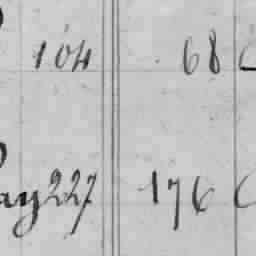 104 68
ay 227 176